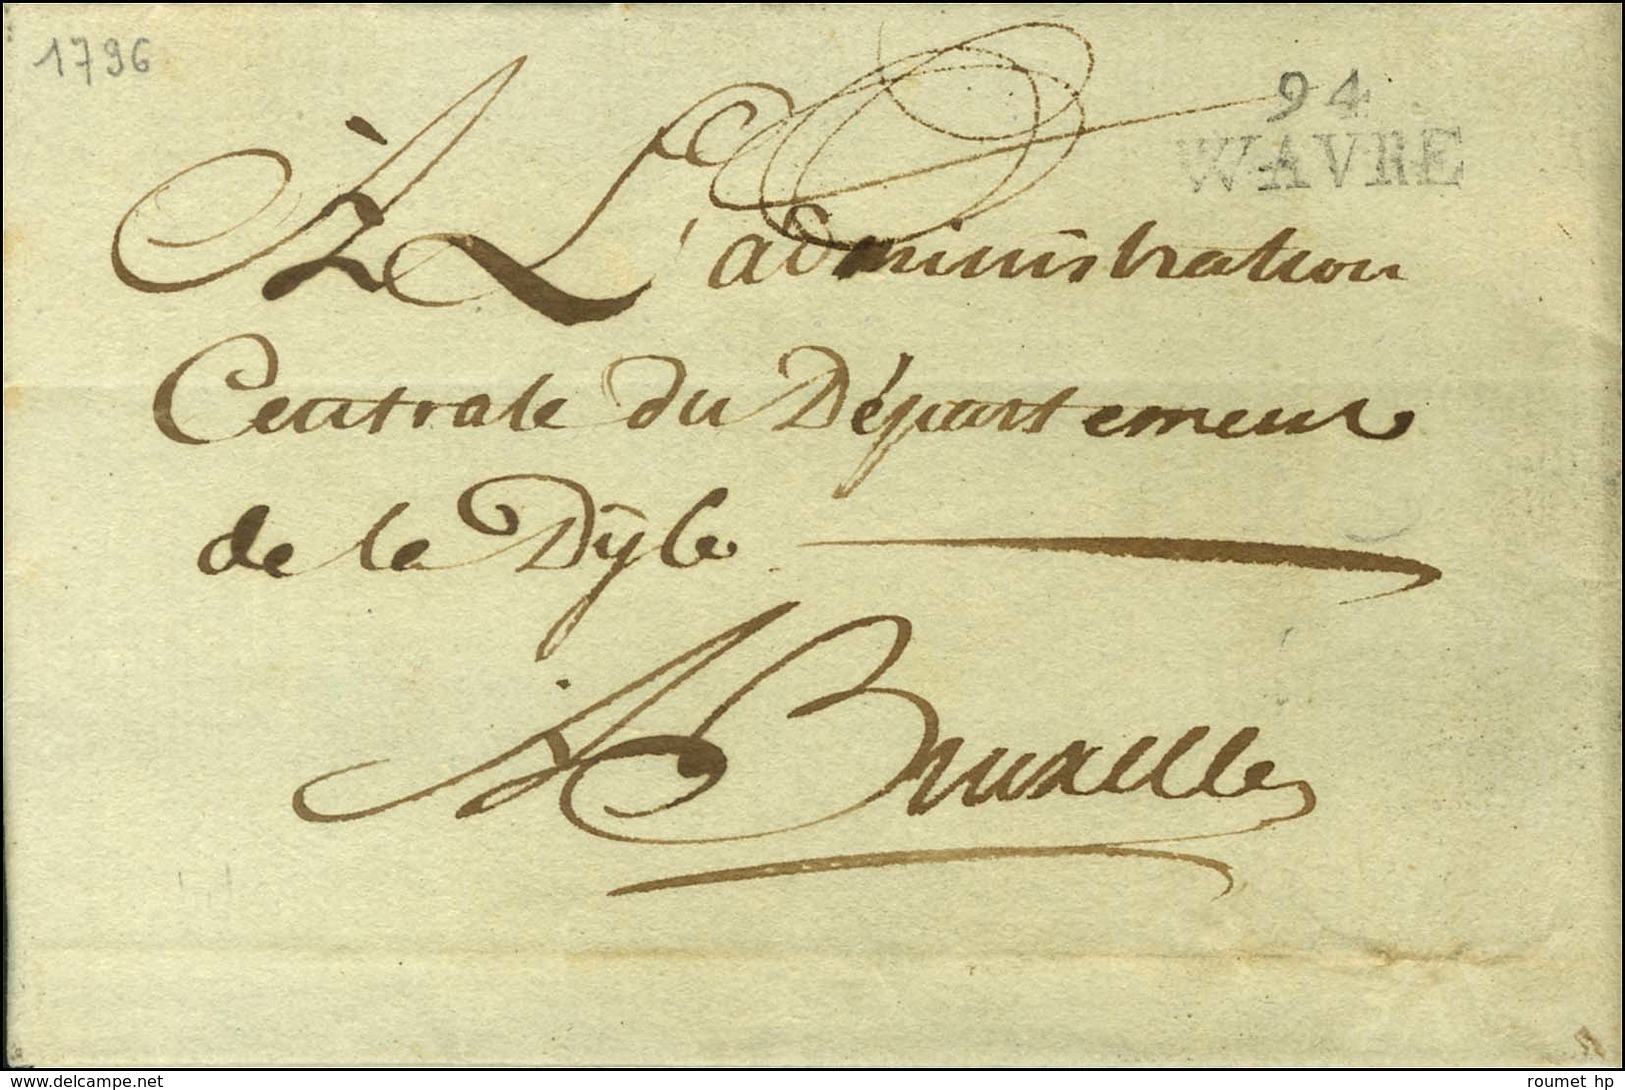 1796
94
WAVRE
À L'administration
Centrale du Département
de la Dÿle
A Bruxelles
www.delcampe.net
roumet hp